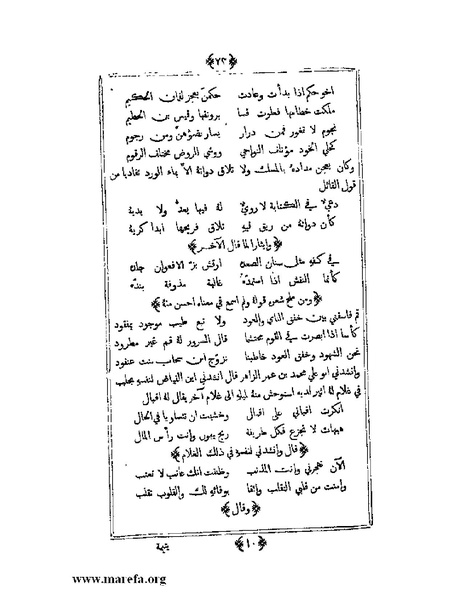 ﴿٧٣﴾
اخو حكم اذا بدأت وعادت حكمن بعجز لقمان الحكيم
ملكت خطامها فعلوت قسا برونقها وقيس بن الخطيم
نجوم لا تغور فمن درار يسار بضوءهن ومن رجوم
كحلي الخود مؤتلف النواحي ووشي الروض مختلف الرقوم
وكان يعجن مداده بالمسك ولا تلاق دواته الا بماء الورد تفاديا من
قول القائل
دعي في الكتابة لا روي له فيها يعد ولا بديه
كأن دواته من ريق فيه تلاق فريحها ابدا كريه
﴿وايثارا لما قال الآخر﴾
في كفه مثل سنان الصعده ارقش بز الافعوان جلده
كأنما النقش اذا استمده غالية مذوفة بنده
﴿ومن ملح شعره قوله ولم اسمع في معناه احسن منه﴾
قم فاسقني بين خفق الناي والعود ولا تبع طيب موجود بمفقود
كأسا اذا ابصرت في القوم محتشما قال السرور له قم غير مطرود
نحن الشهود وخفق العود خاطبنا نزوج ابن سحاب بنت عنقود
وانشدني ابو علي محمد بن عمر الزاهر قال انشدني ابن الفياض لنفسه بحلب
في غلام له اثير لديه استوحش منه لميله الى غلام آخر يقال له اقبال
انكرت اقبالي على اقبال وخشيت ان تتساويا في الحال
هيهات لا تجزع فكل طريفة ريح يهون وانت رأس المال
﴿قال وانشدني لنفسه في ذلك الغلام﴾
الآن تهجرني وانت المذنب وظننت انك عاتب لا تعتب
وامنت من قلبي التقلب واثقا بوفائه لك والقلوب تقلب
﴿وقال﴾
﴿١٠﴾ يتيمة
www.marefa.org